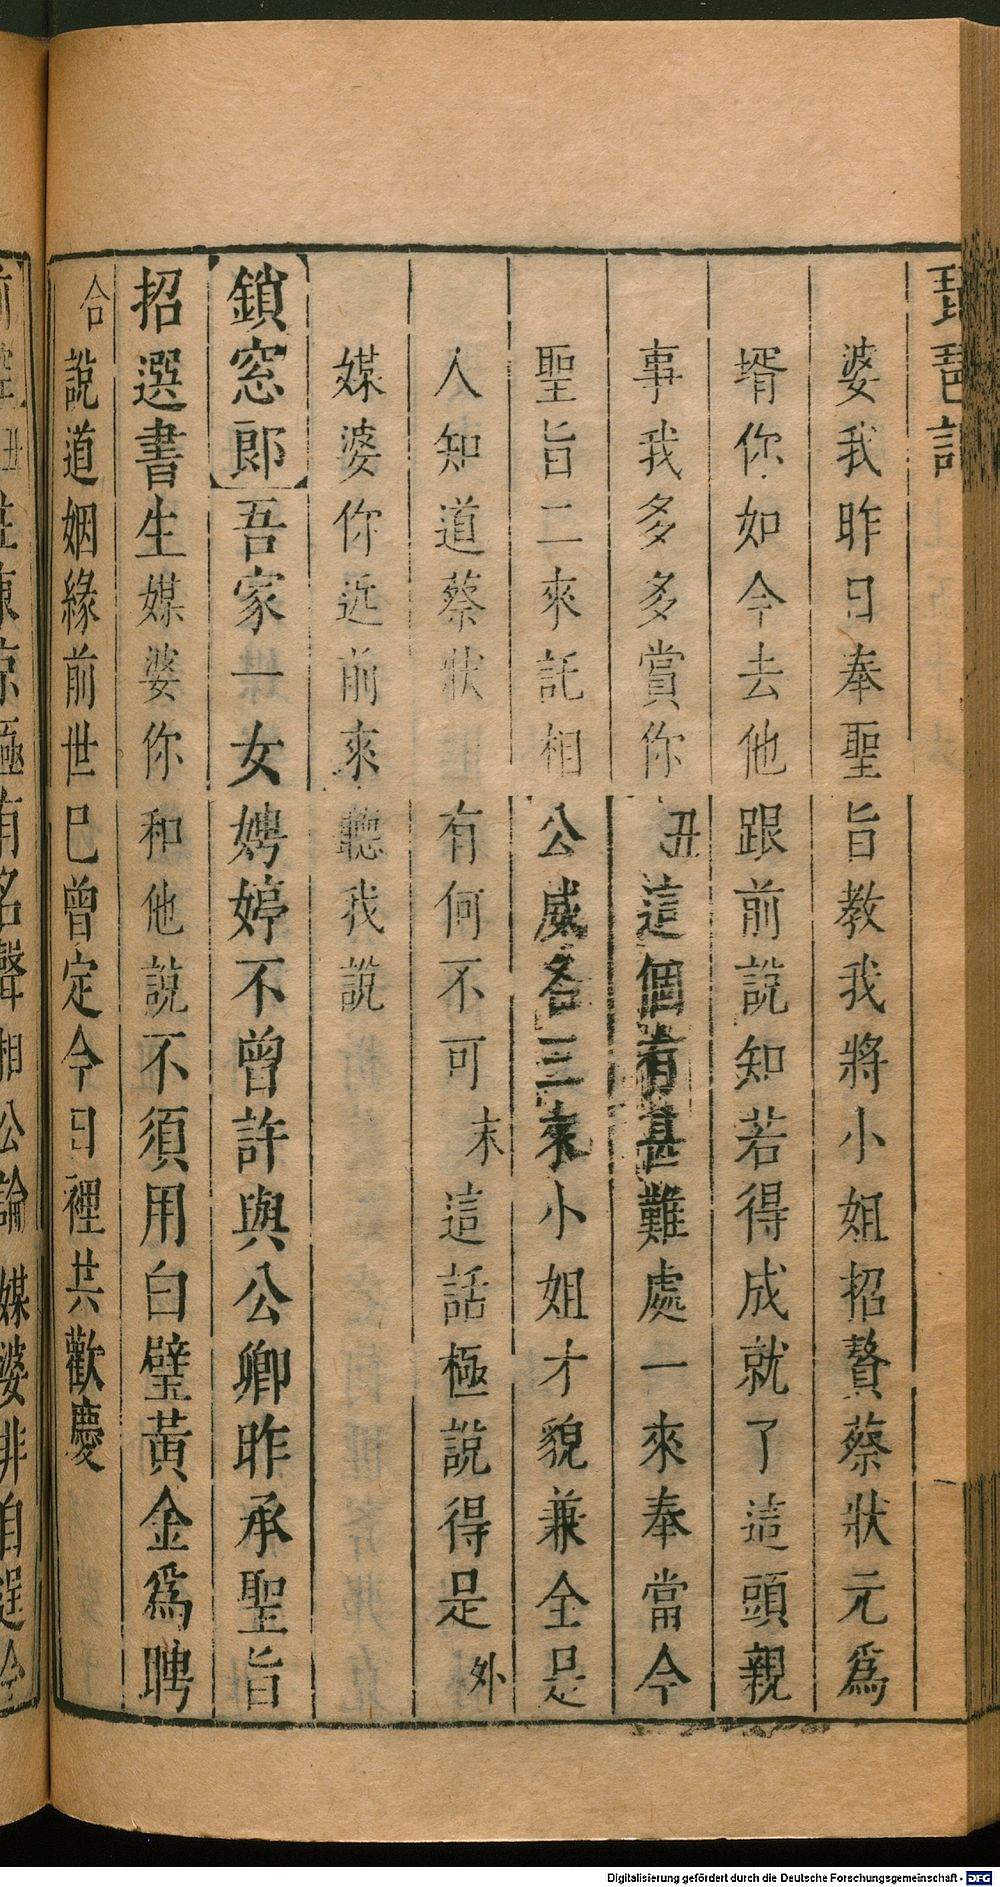 琵琶記
婆我昨日奉聖旨教我將小姐招贅蔡狀元為
壻你如今去他跟前說知若得成就了這頭親
事我多多賞你丑這個有甚難處一來奉當今
聖旨二來託相公威名三來小姐才貌兼全是
人知道蔡狀有何不可末這話極說得是外
媒婆你近前來聽我說
鎖窓郎吾家一女娉婷不曾許與公卿昨承聖旨
招選書生媒婆你和他說不須用白璧黃金為聘
合說道姻緣前世已曾定今日裡共歡慶
前腔丑住東京極有名聲相公論媒婆非自逞今
Digitalisierung gefördert durch die Deutsche Forschungsgemeinschaft - DFG